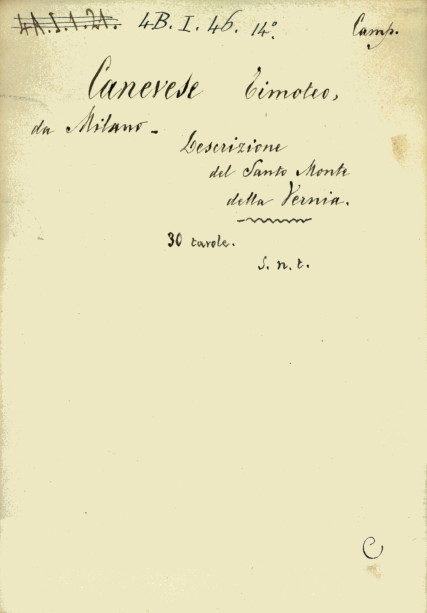 4A.5.1.21. 4B. I. 46. 14°. Camp.
Canevese Timoteo,
da Milano -
Descrizione
del Santo Monte
della Vernia.
30 tavole.
S. n. t.
C